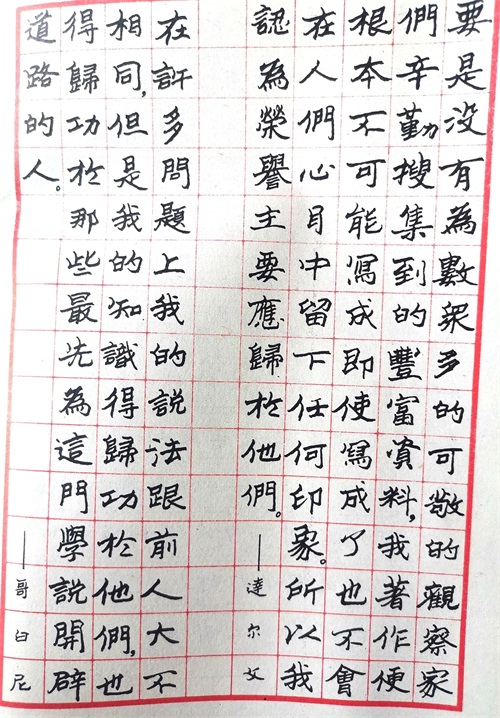 要是没有為數眾多的可敬的觀察家
們辛勤搜集到的豐富資料,我著作便
根本不可能寫成即使寫成了也不會
在人們心目中留下任何印象。所以我
認為榮譽主要應歸於他們。—達尔文
在許多問題上我的說法跟前人大不
相同,但是我的知識得歸功於他們,也
得歸功於那些最先為這門學說開辟
道路的人。—哥白尼